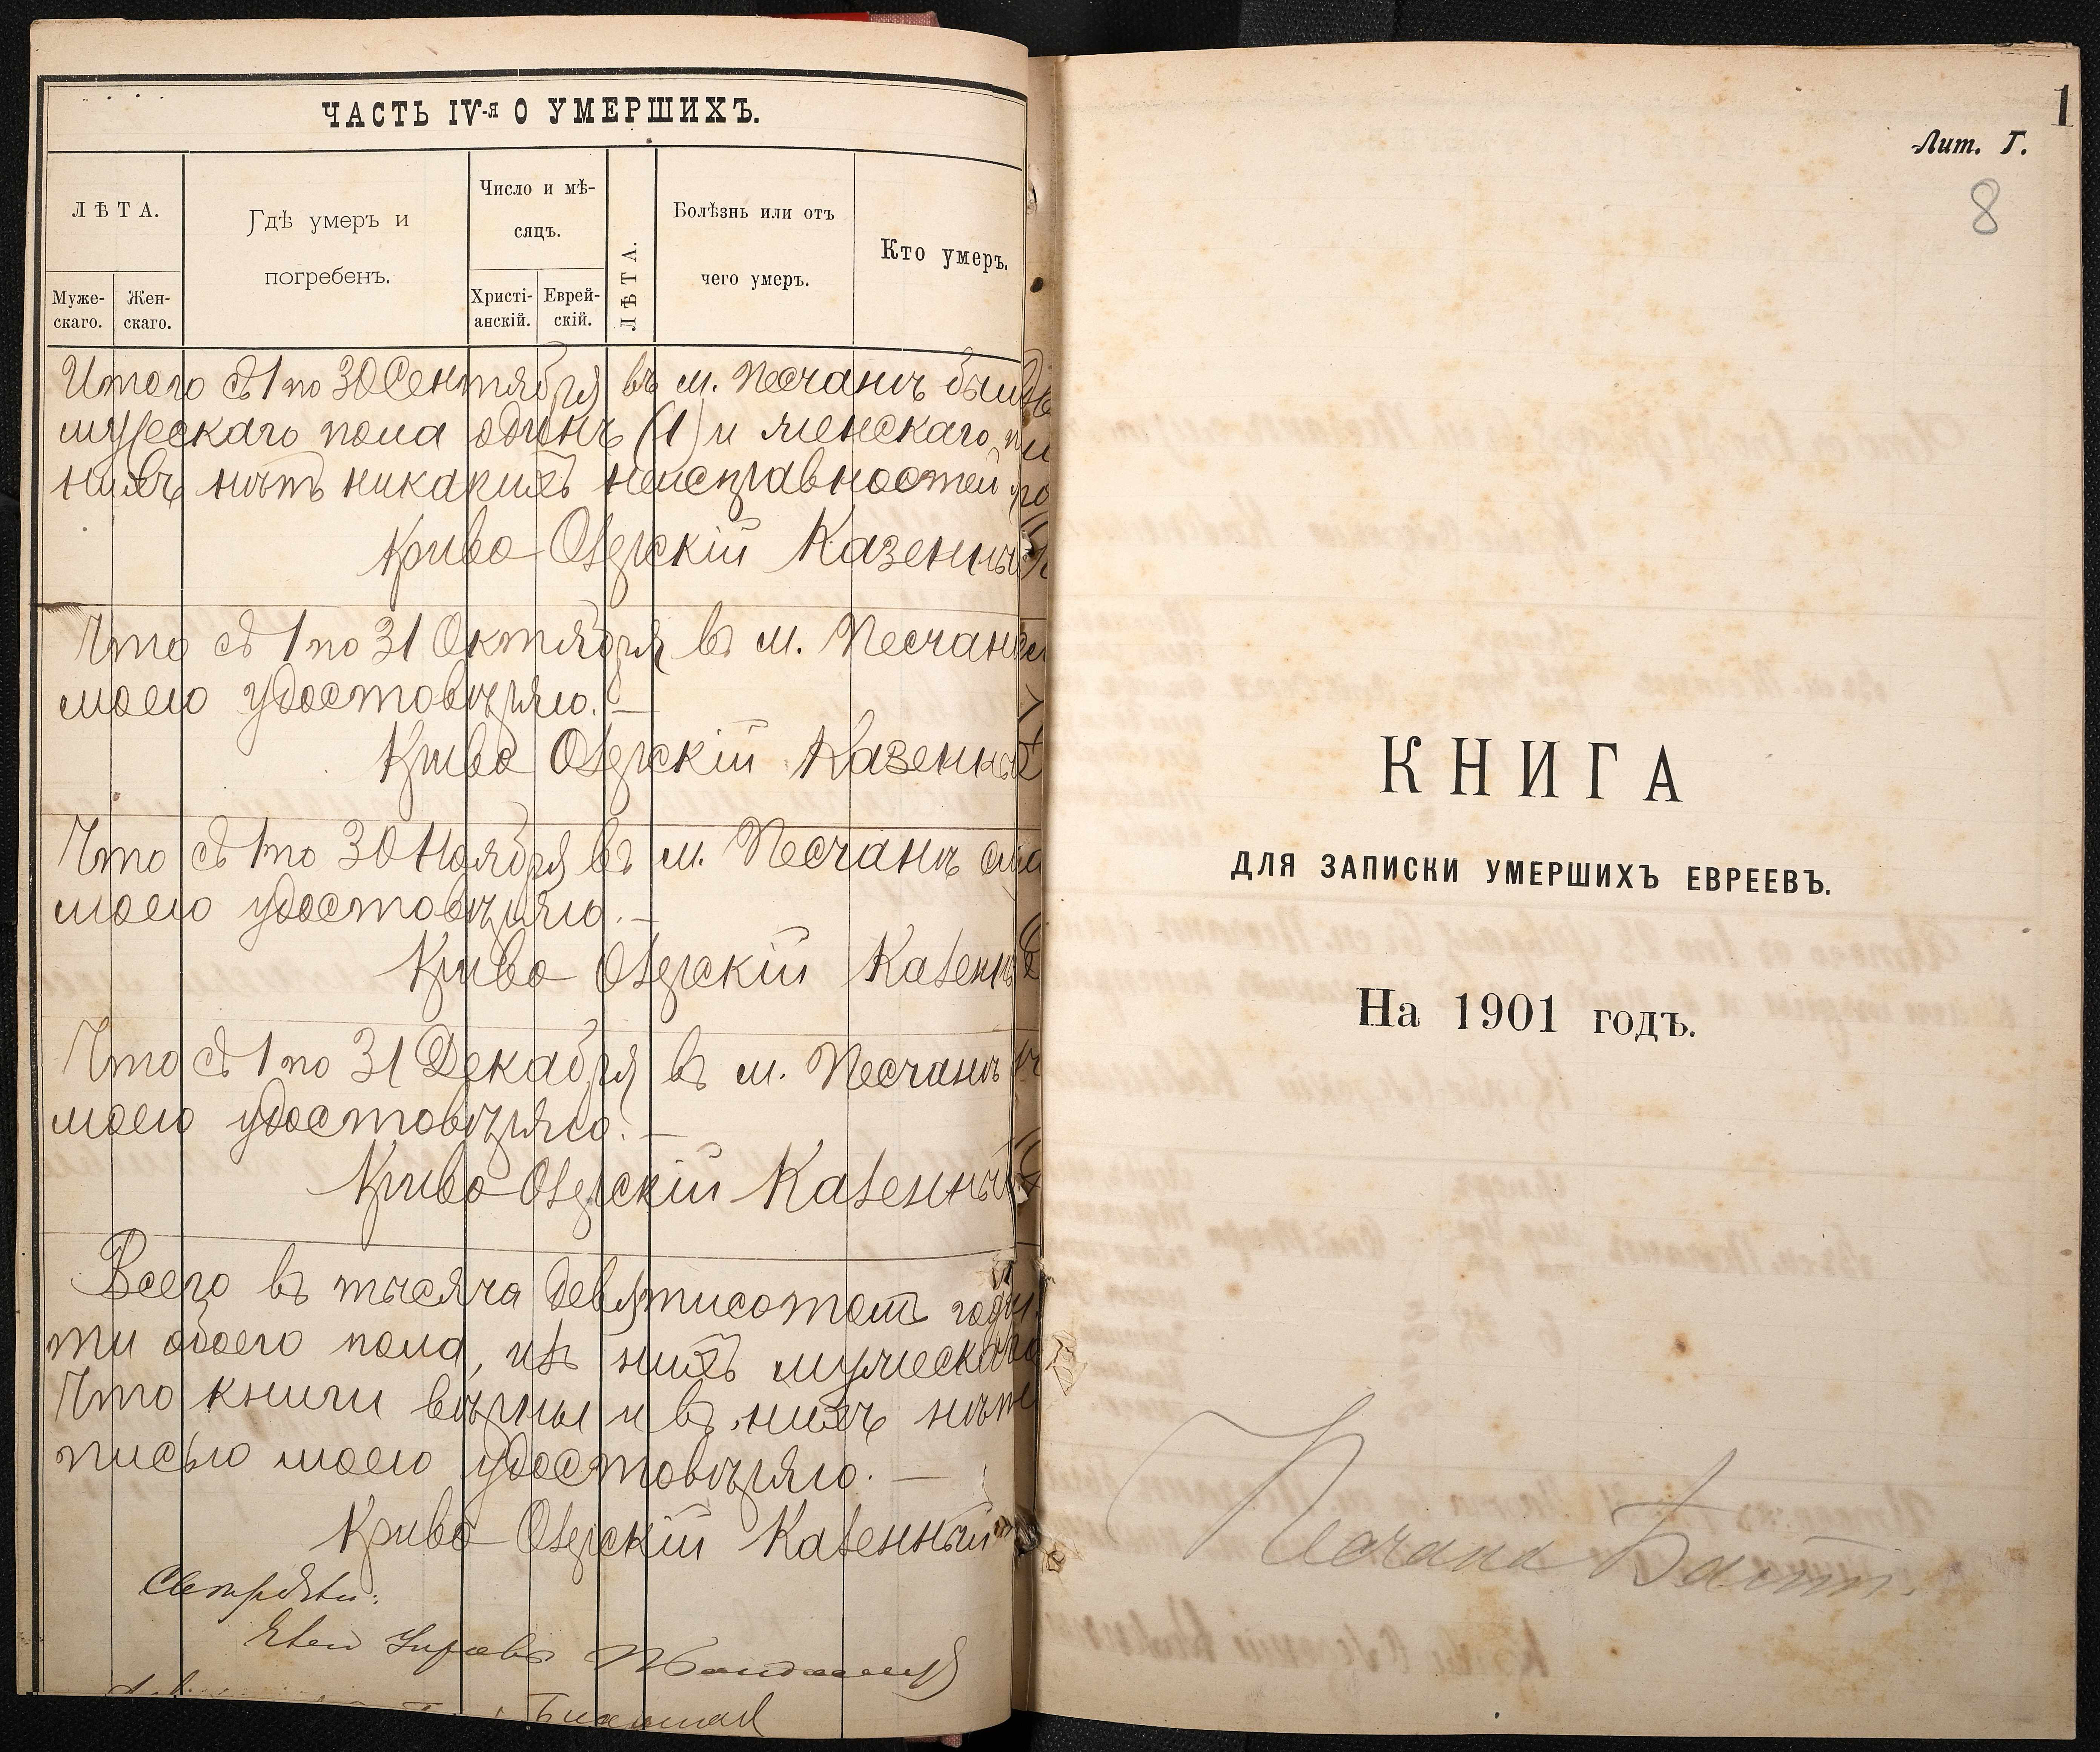 ЧАСТЬ IV-я О УМЕРШИХЪ.
ЛѢТА.
Муже-
скаго.
Жен-
скаго.
Гдѣ умеръ и
погребенъ.
Число и мѣ-
сяцъ.
Христі-
анскій.
Еврей-
скій.
ЛѢТА.
Болѣзнь или отъ
чего умеръ.
Кто умеръ.
Итого съ 1 по 30 Сентября въ м. Песчанѣ
мужескаго пола одинъ (1) и женскаго
нихъ нѣтъ никакихъ неисправностей
Криво Озерскій Казенный
Что съ 1 по 31 Октября въ м. Песчанѣ
моею удостовѣряю. —
Криво Озерскій Казенный
Что съ 1 по 30 Ноября въ м. Песчанѣ
моею удостовѣряю. —
Криво Озерскій Казенны
Что съ 1 по 31 Декабря въ м. Песчанѣ
моею удостовѣряю. —
Криво Озерскій Казенный
Всего въ тысяча девятисотомъ году
ти обоего пола, изъ нихъ мужескаго
Что книги вѣрны и въ нихъ нѣтъ
писью моею удостовѣряю. —
Криво Озерскій Казенный
Смотрѣли:
Члены Управы
1
Лит. Г.
8
КНИГА
ДЛЯ ЗАПИСКИ УМЕРШИХЪ ЕВРЕЕВЪ.
На 1901 годъ.
Песчана Балт.